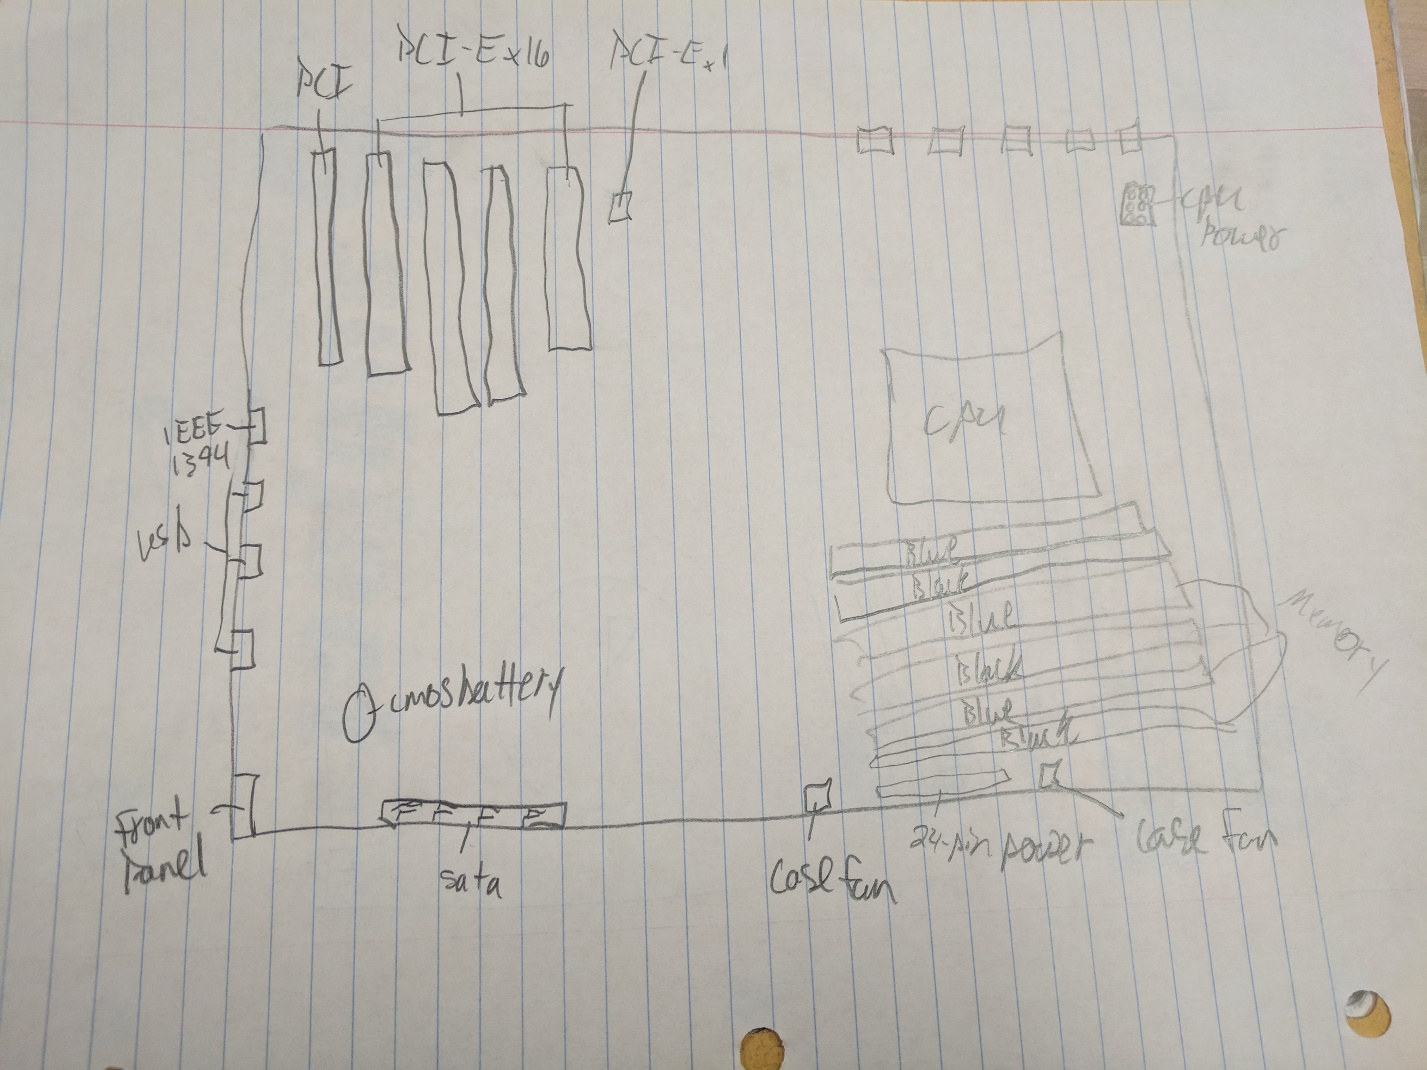 PCI
PCI-Ex16
PCI-Ex1
CPU
Power
CPU
IEEE
1394
USB
Blue
Black
Blue
Black
Blue
Black
Memory
cmos battery
Front
Panel
sata
case fan
24-pin power
case fan